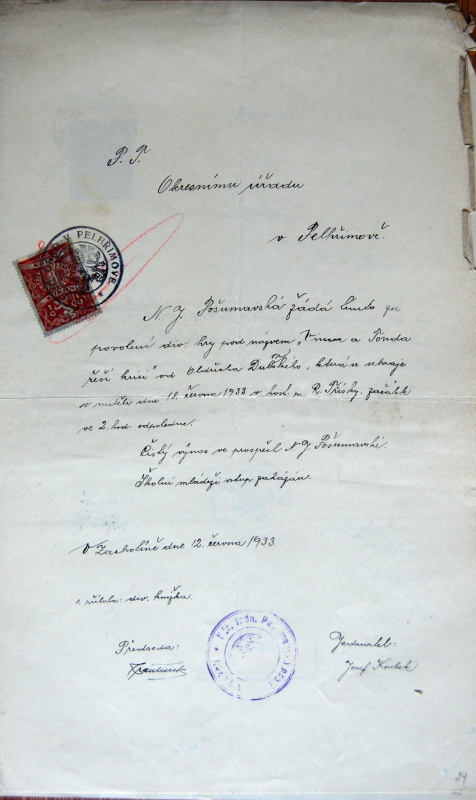 P. T.
Okresnímu úřadu
v Pelhřimově.
V PELHŘIMOVĚ
N. J. Pošumavská žádá tímto za
povolení div. hry pod názvem „Vinca a Tonda
řeší krisi" od Oldřicha Dubského, která se sehraje
v neděli dne 18. června 1933 v host. p. R. Přísky, začátek
ve 2. hod. odpoledne.
Čistý výnos ve prospěch N. J. Pošumavské.
Školní mládeži vstup zakázán.
V Zachotíně dne 12. června 1933.
1. příloha: div. knížka.
Předseda:
Jednatel:
Josef Koubek
24